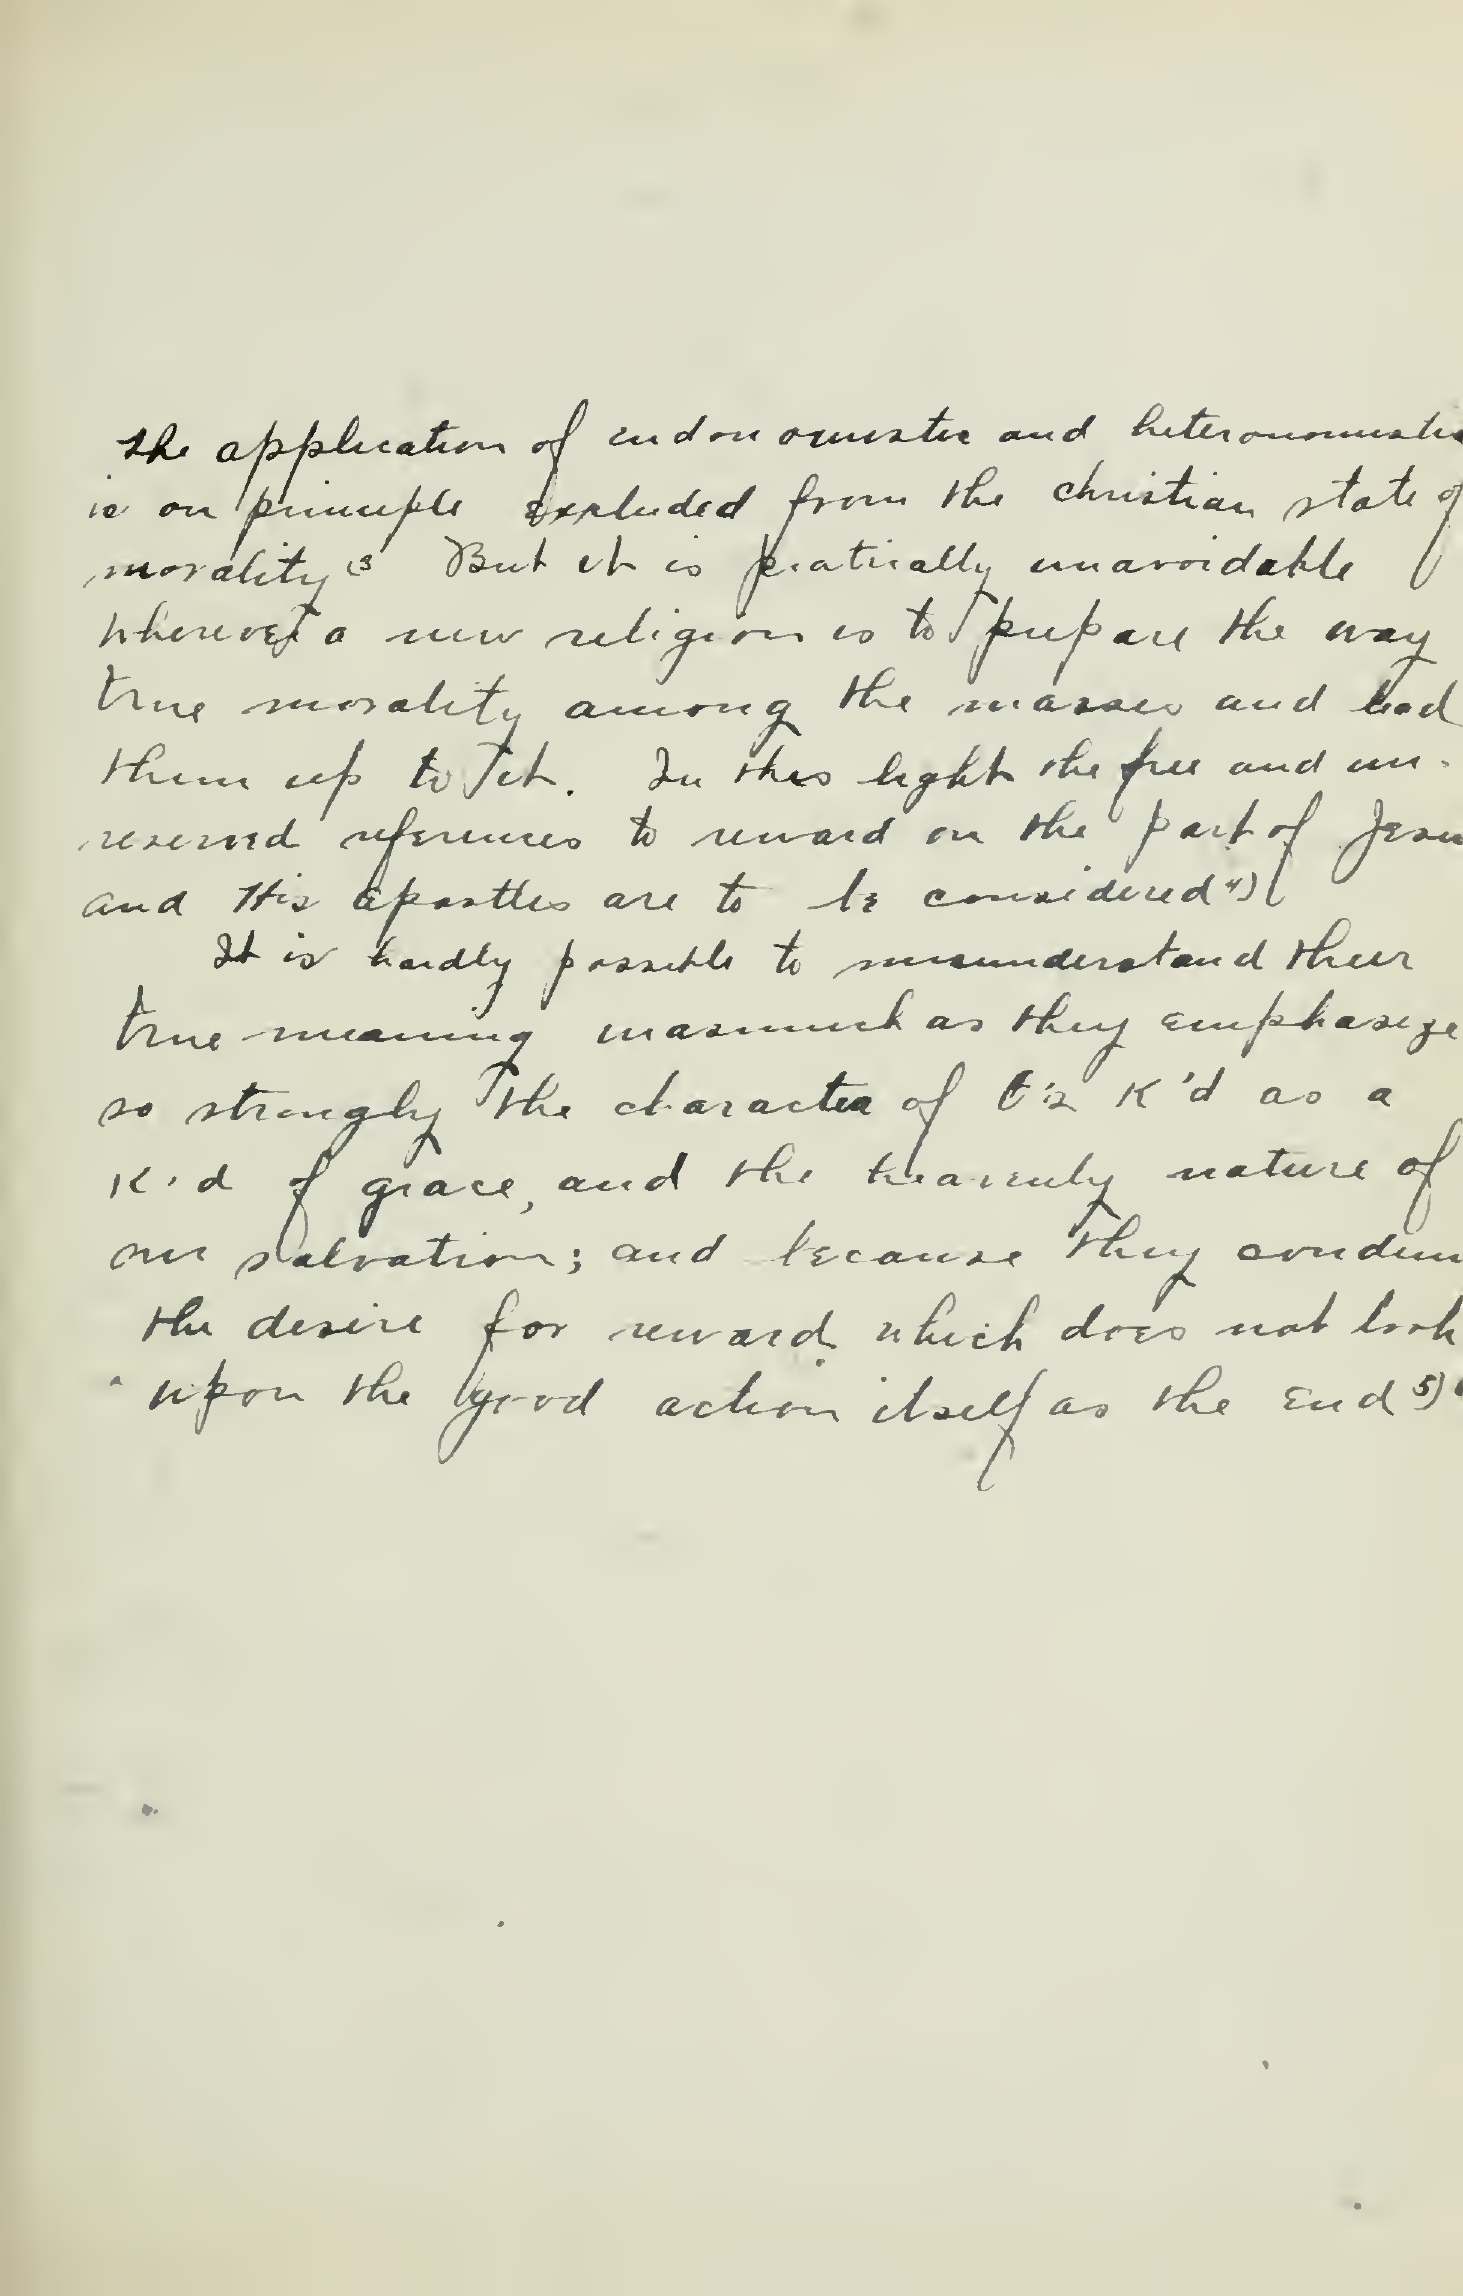 The application of eudomonistic and heteronomistic
is on principle excluded from the christian state of
morality (3 But it is pratically unavoidable
wherever a new religion is to prepare the way
true morality among the masses and lead
them up to it. In this light the free and un-
reserved references to reward on the part of Jesus
and His apostles are to be considered 4)
It is hardly possible to misunderstand their
true meaning inasmuch as they emphasize
so strongly the character of G's K'd as a
K'd of grace, and the heavenly nature of
our salvation; and because they condemn
the desire for reward which does not look
upon the good action itself as the end 5)